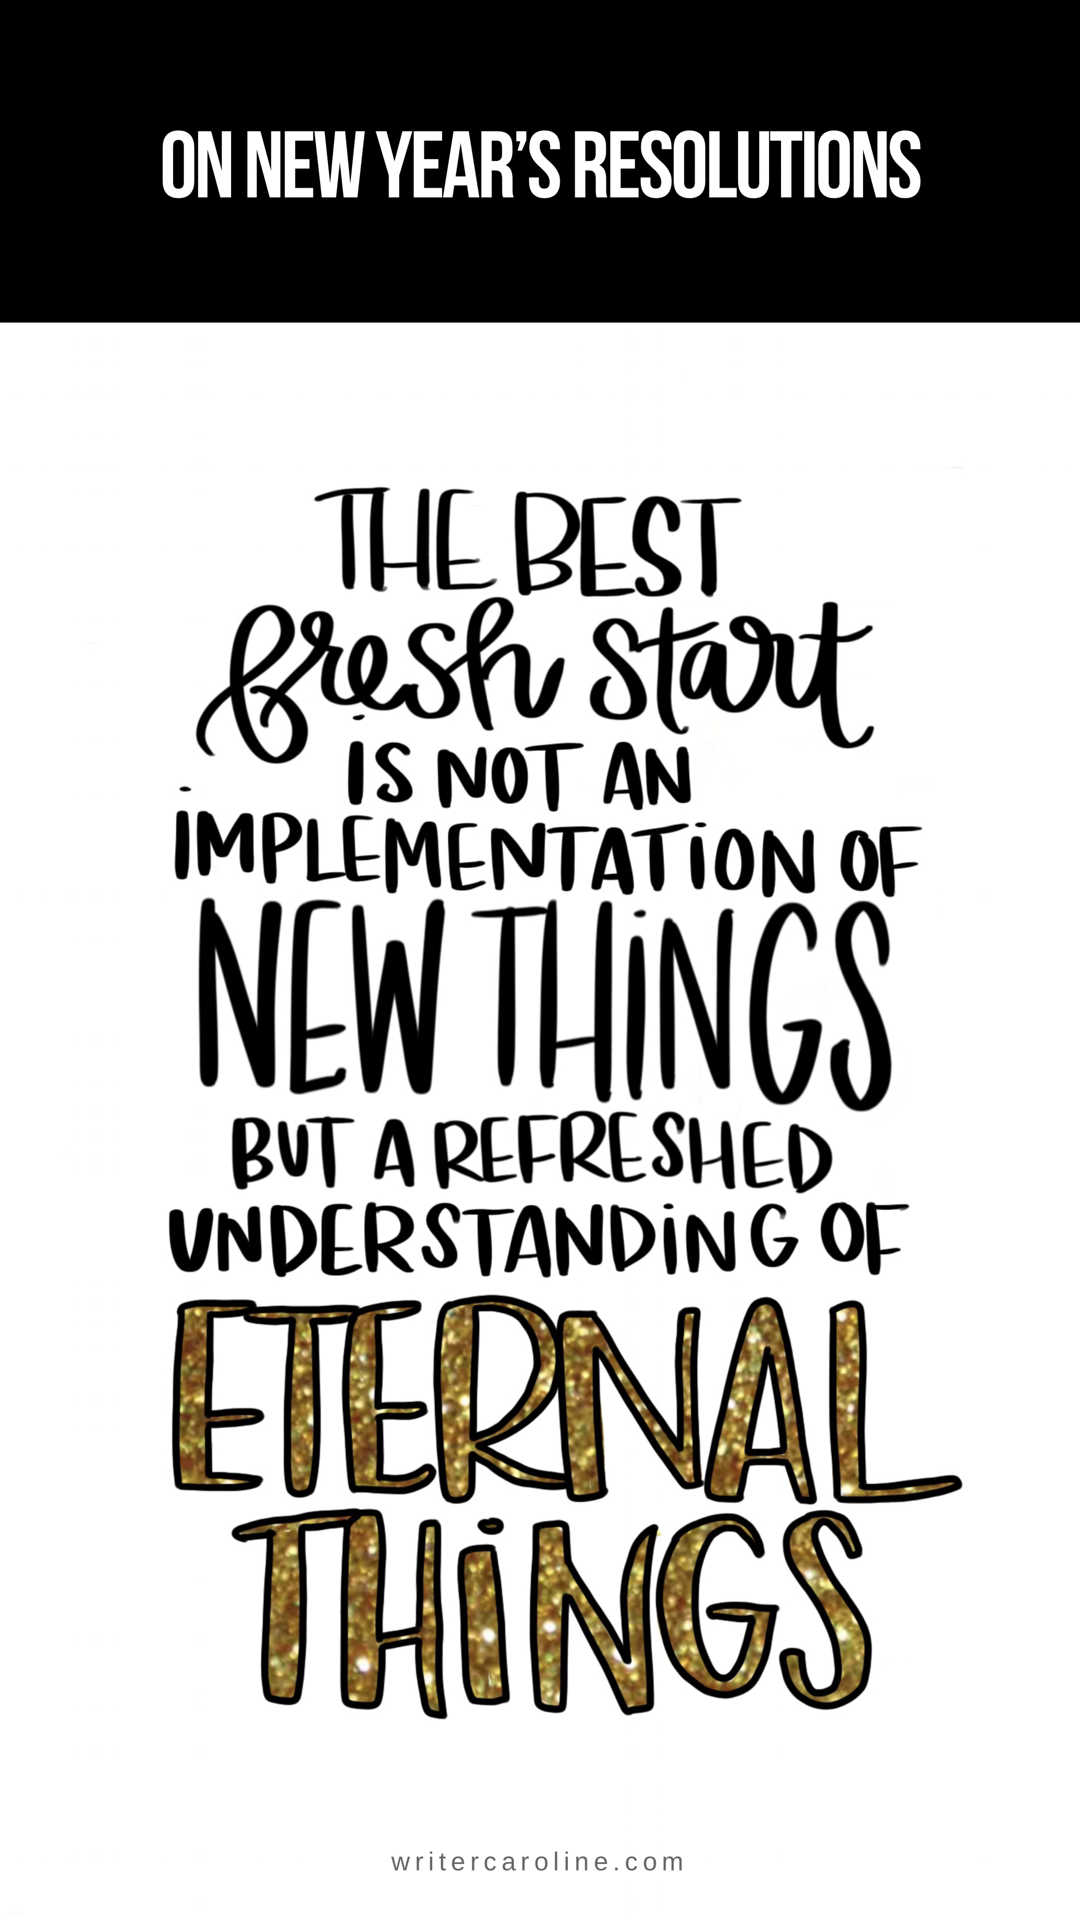 ON NEW YEAR'S RESOLUTIONS
THE BEST
fresh start
iS NOT AN
iMPLEMENTATiON OF
NEW THiNGS
BUT A REFRESHED
UNDERSTANDiNG OF
ETERNAL
THiNGS
writercaroline.com